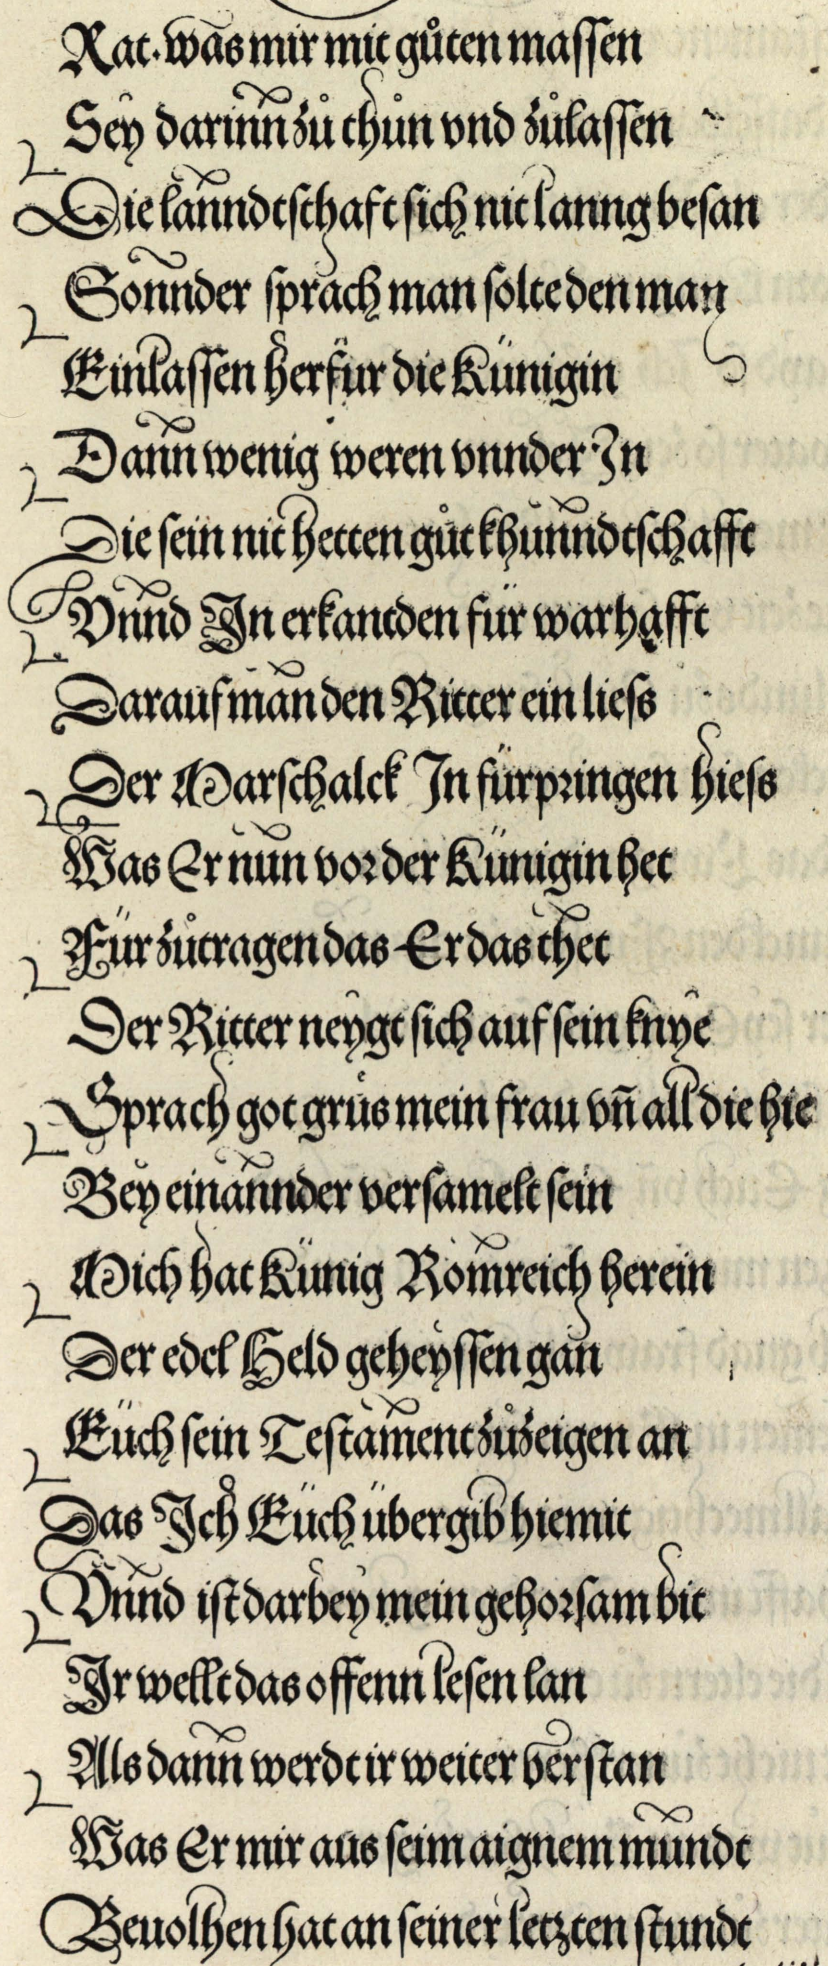 Rat. was mir mit gůten massen
Sey darinn zů thůn vnd zůlassen
Die lanndtschaft sich nit lanng besan
Sonnder sprach man solte den man
Einlassen herfür die Künigin
Dann wenig weren vnnder In
Die sein nit hetten gůt khunndtschafft
Vnnd In erkantden für warhafft
Darauf man den Ritter ein liess
Der Marschalck In fürpringen hiess
Was Er nun vor der Künigin het
Für zůtragen das Er das thet
Der Ritter neygt sich auf sein knye
Sprach got grüs mein frau vñ all die hie
Bey einannder versamelt sein
Mich hat Künig Romreich herein
Der edel Held geheyssen gan
Eüch sein Testament zůzeigen an
Das Ich Eüch übergib hiemit
Vnnd ist darbey mein gehorsam bit
Ir wellt das offenn lesen lan
Als dann werdt ir weiter verstan
Was Er mir aus seim aignem mundt
Beuolhen hat an seiner letzten stundt